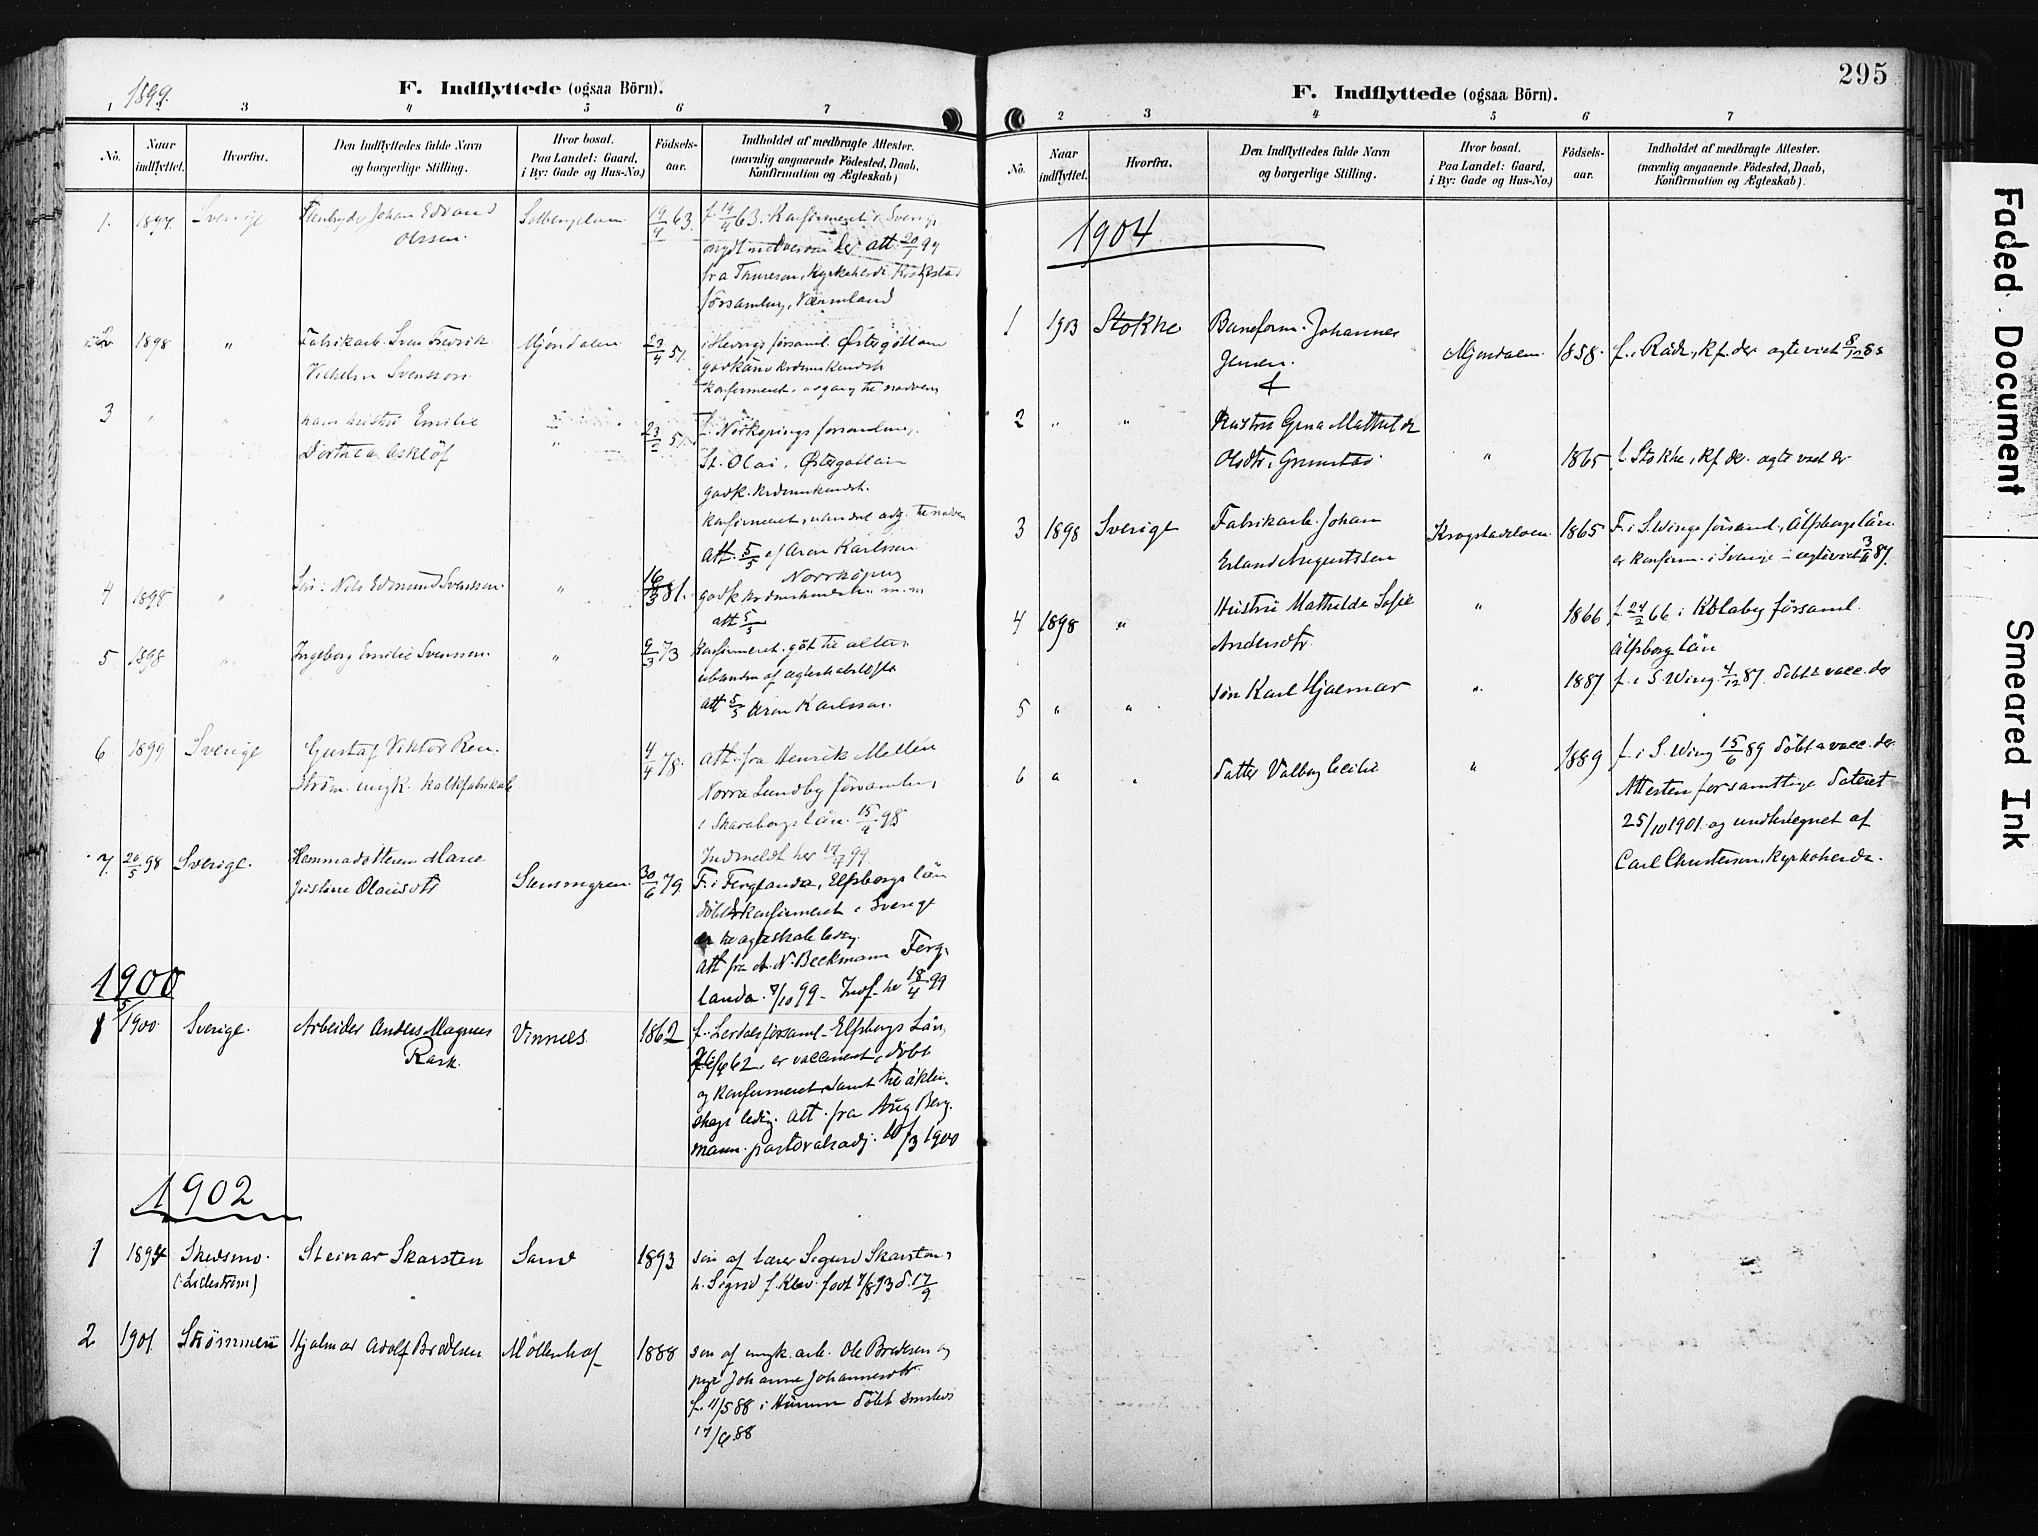 295
Faded Document
Smeared Ink
F. Indflyttede (ogsaa Börn).
1899.
1 3 4 5 6 7
No.
Naar indflyttet.
Hvorfra.
Den Indflyttedes fulde Navn
og borgerlige Stilling.
Hvor bosat.
Paa Landet: Gaard,
i By: Gade og Hus-No.)
Födsels-
aar.
Indholdet af medbragte Attester.
(navnlig angaaende Födested, Daab,
Konfirmation og Ægteskab)
1. 1897. Sverige Johan Edvard Solbergelven 19/4 63. f. 19/4 63. Konfirmeret i Sverige
Olssen. att. 20/7 97
fra Thureson, Kyrkoherde
församling, Värmland
2 1898 " Fabrikarb. Sven Fredrik Mjøndalen 23/4 51. församl. Östergötland
Vilhelm Svensson
konfirmeret, adgang til nadveren
3 " " hans hustru Emilie " 23/2 51 f. Norköpings forsamling
Dorthea Asklöf St. Olai, Östergötland
godk. kristendomskundsk.
konfirmeret, adg. til nadver
att. 5/5 af Aron Karlsson
Norrköping
4 1898 " Søn: Nils Edmund Svensson " 16/3 81. godk.
att 5/5
5 1898 " Ingeborg Emilie Svensson " 9/3 73 konfirmeret, gåt til alters
att 5/5 Aron Karlsson.
6 1899 Sverige Gustaf Viktor Ren- 4/4 78. Att. fra Henrik
ström, ungk. kalkfabrikarb. Norra Lundby församling
i Skaraborgs län. 15/4 98
Indmeldt her 17/4 99.
7. 20/5 98 Sverige. Hemmadotteren Marie 30/6 79. F. i Ferglanda, Elfsborgs län
Justine Olausdtt døbt & konfirmeret i Sverige
er til ægteskab ledig
Att fra A. N. Beckmann Ferg-
landa. 7/10 99 - Indf. her 18/4 99
1900
1 5/1900. Sverige. Arbeider Anders Magnus Vinnes. 1862 f. i Lerdals församl. Elfsborgs Län,
Rask. er vaccineret, döbt
og konfirmeret samt til äkten-
skap ledig. Att. fra Aug Berg-
mann. pastoralsadj. 10/3 1900
1902
1 1894 Skedsmo. Steinar Skarsten Sand 1893 søn af lærer Sigurd Skarsten,
(Lillestrøm) h. Sigrid f. Klev. født 7/8 93 d. 17/9
2 1901. Strømmen Hjalmar Adolf Bredesen Møllenhof 1888 søn af ungk. arb. Ole Bredesen og
pige Johanne Johannesdtr.
f. 11/5 88 i Hurum døbt smsteds
17/6 88
F. Indflyttede (ogsaa Börn).
2 3 4 5 6 7
No.
Naar indflyttet.
Hvorfra.
Den Indflyttedes fulde Navn
og borgerlige Stilling.
Hvor bosat.
Paa Landet: Gaard,
i By: Gade og Hus-No.)
Födsels-
aar.
Indholdet af medbragte Attester.
(navnlig angaaende Födested, Daab,
Konfirmation og Ægteskab).
1904
1 1903 Stokke Baneform. Johannes
Jensen. Mjøndalen 1858. f. i Råde, kf. der ægteviet 8/12 85
&
2 " " Hustru Gina Mathilde
Olsdtr. Grimstad " 1865 f. Stokke, kf. der. ægteviet der
3 1898 Sverige Fabrikarb. Johan Krogstadelven 1865 F. i S. Wings församl., Älfsborgs län
Erland Augustsson er konfirm. i Sverige - ægteviet 3/4 87.
4 1898 " Hustru Mathilde Sofie " 1866 f. 24/2 66 i Kölaby församl.
Andersdtr. Älfsborg län
5 " " søn Karl Hjalmar " 1887 f. i S Wing 4/12 87. døbt & vacc. der
6 " " datter Valborg Cecilie " 1889 f. i S. Wing 15/6 89 døbt & vacc. der.
Attesten for samtlige dateret
25/10 1901. og undertegnet af
Carl Christerson, kyrkoherde.